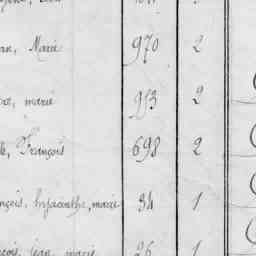 an, Marie 970 2
re, marie 953 2
le, François 698 2
nçois, hyacinthe, marie 34 1
nçois, jean, marie 26 1